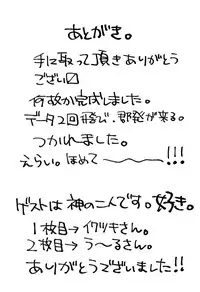 あとがき。
手に取って頂きありがとう
ございます
何故か完成しました。
データ2回飛び、即発が来る。
つかれました。
えらい。ほめて〜〜〜!!!
ゲストは神の二人です。好き。
1枚目→イワツキさん。
2枚目→う〜るさん。
ありがとうございました!!